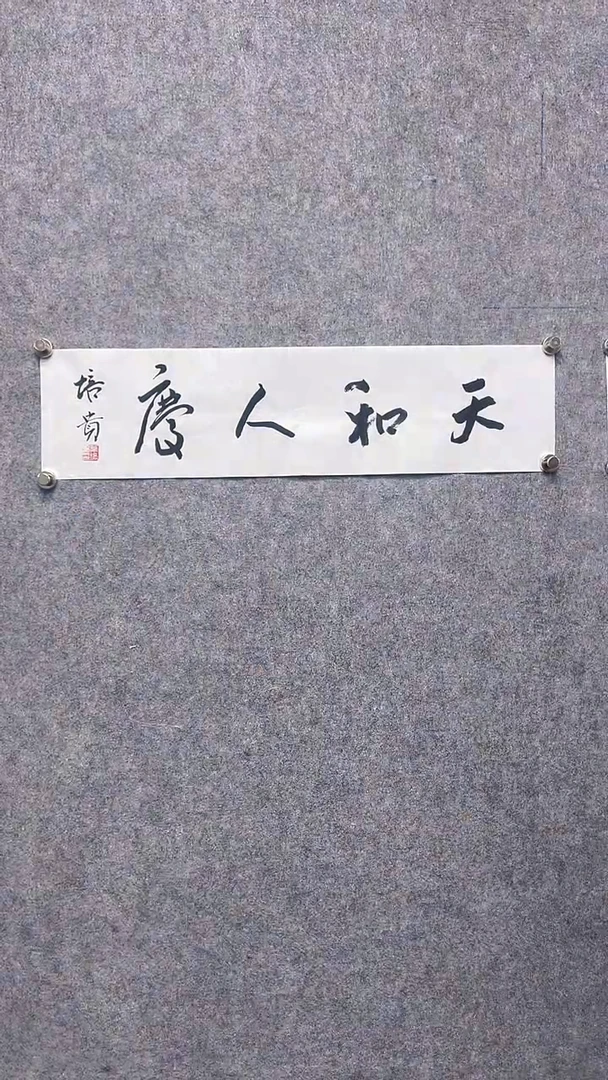 天和人慶
培貴